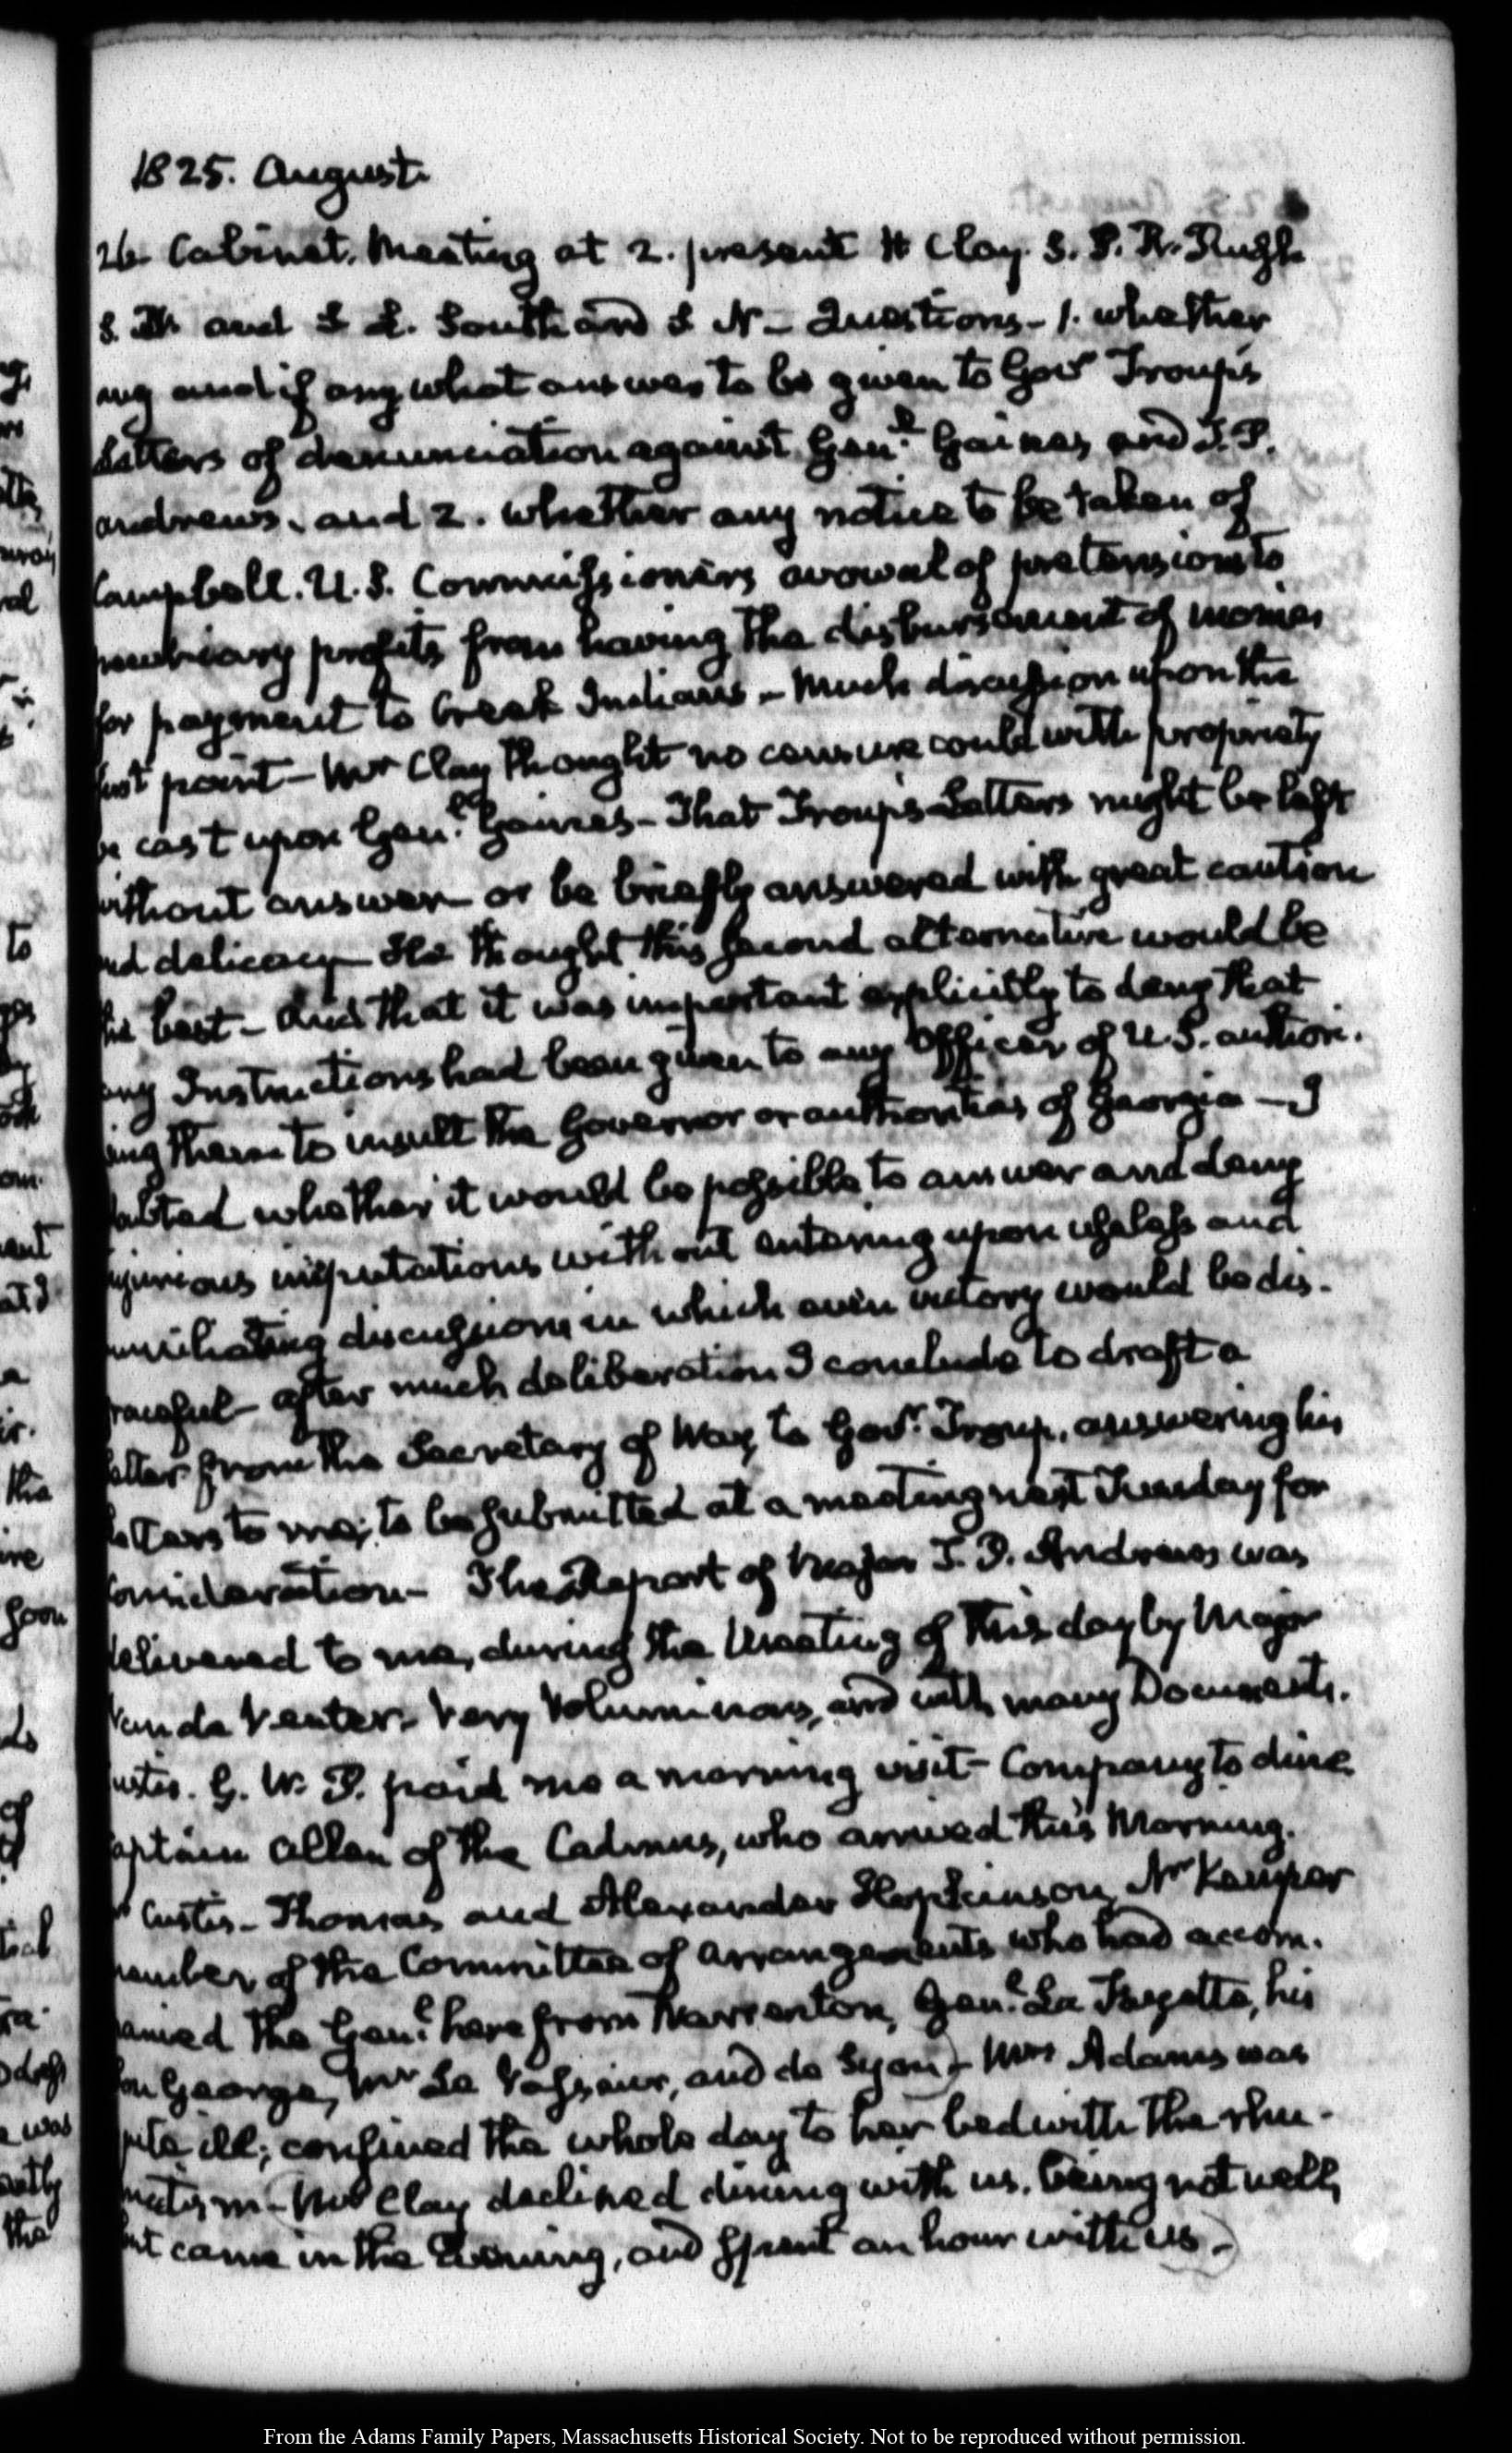 1825. August.
26 Cabinet. Meeting at 2. present H Clay. S. S. R. Rush
S. Tr. and S L. Southard S N— Questions— 1. whether
any and if any what answer to be given to Govr Troup's
Letters of denunciation against Genl. Gaines and T. P.
Andrews, and 2. whether any notice to be taken of
Campbell. U.S. Commissioners avowal of pretensions to
pecuniary profits from having the disbursement of monies
for payment to Creek Indians. Much discussion upon the
first point— Mr Clay thought no censure could with propriety
be cast upon Genl. Gaines— That Troup's Letters might be left
without answer— or be briefly answered with great caution
and delicacy— He thought this second alternative would be
the best— And that it was important explicitly to deny that
any Instructions had been given to any Officer of U.S. authori-
zing them to insult the Governor or authorities of Georgia— I
doubted whether it would be possible to answer and deny
injurious imputations without entering upon useless and
humiliating discussions in which even victory would be dis-
graceful— after much deliberation I conclude to draft a
letter from the Secretary of War, to Govr. Troup, answering his
letters to me; to be submitted at a meeting next Tuesday for
consideration— The Report of Major T. P. Andrews was
delivered to me, during the Meeting of this day by Major
Vande Venter. Very Voluminous, and with many Documents.
Custis. G. W. P. paid me a morning visit— Company to dine
Captain Allen of the Cadmus, who arrived this Morning.
Mr Custis— Thomas and Alexander Hopkinson, Mr Kemper
member of the Committee of Arrangements who had accom-
panied the Genl. here from Warrenton, Genl. La Fayette, his
Son George, Mr Le Vasseur, and de Syon)— Mrs Adams was
quite ill; confined the whole day to her bed with the rheu-
matism— Mr Clay declined dining with us, being not well,
but came in the Evening, and spent an hour with us.—)
to
the
soon
of
was
the
From the Adams Family Papers, Massachusetts Historical Society. Not to be reproduced without permission.